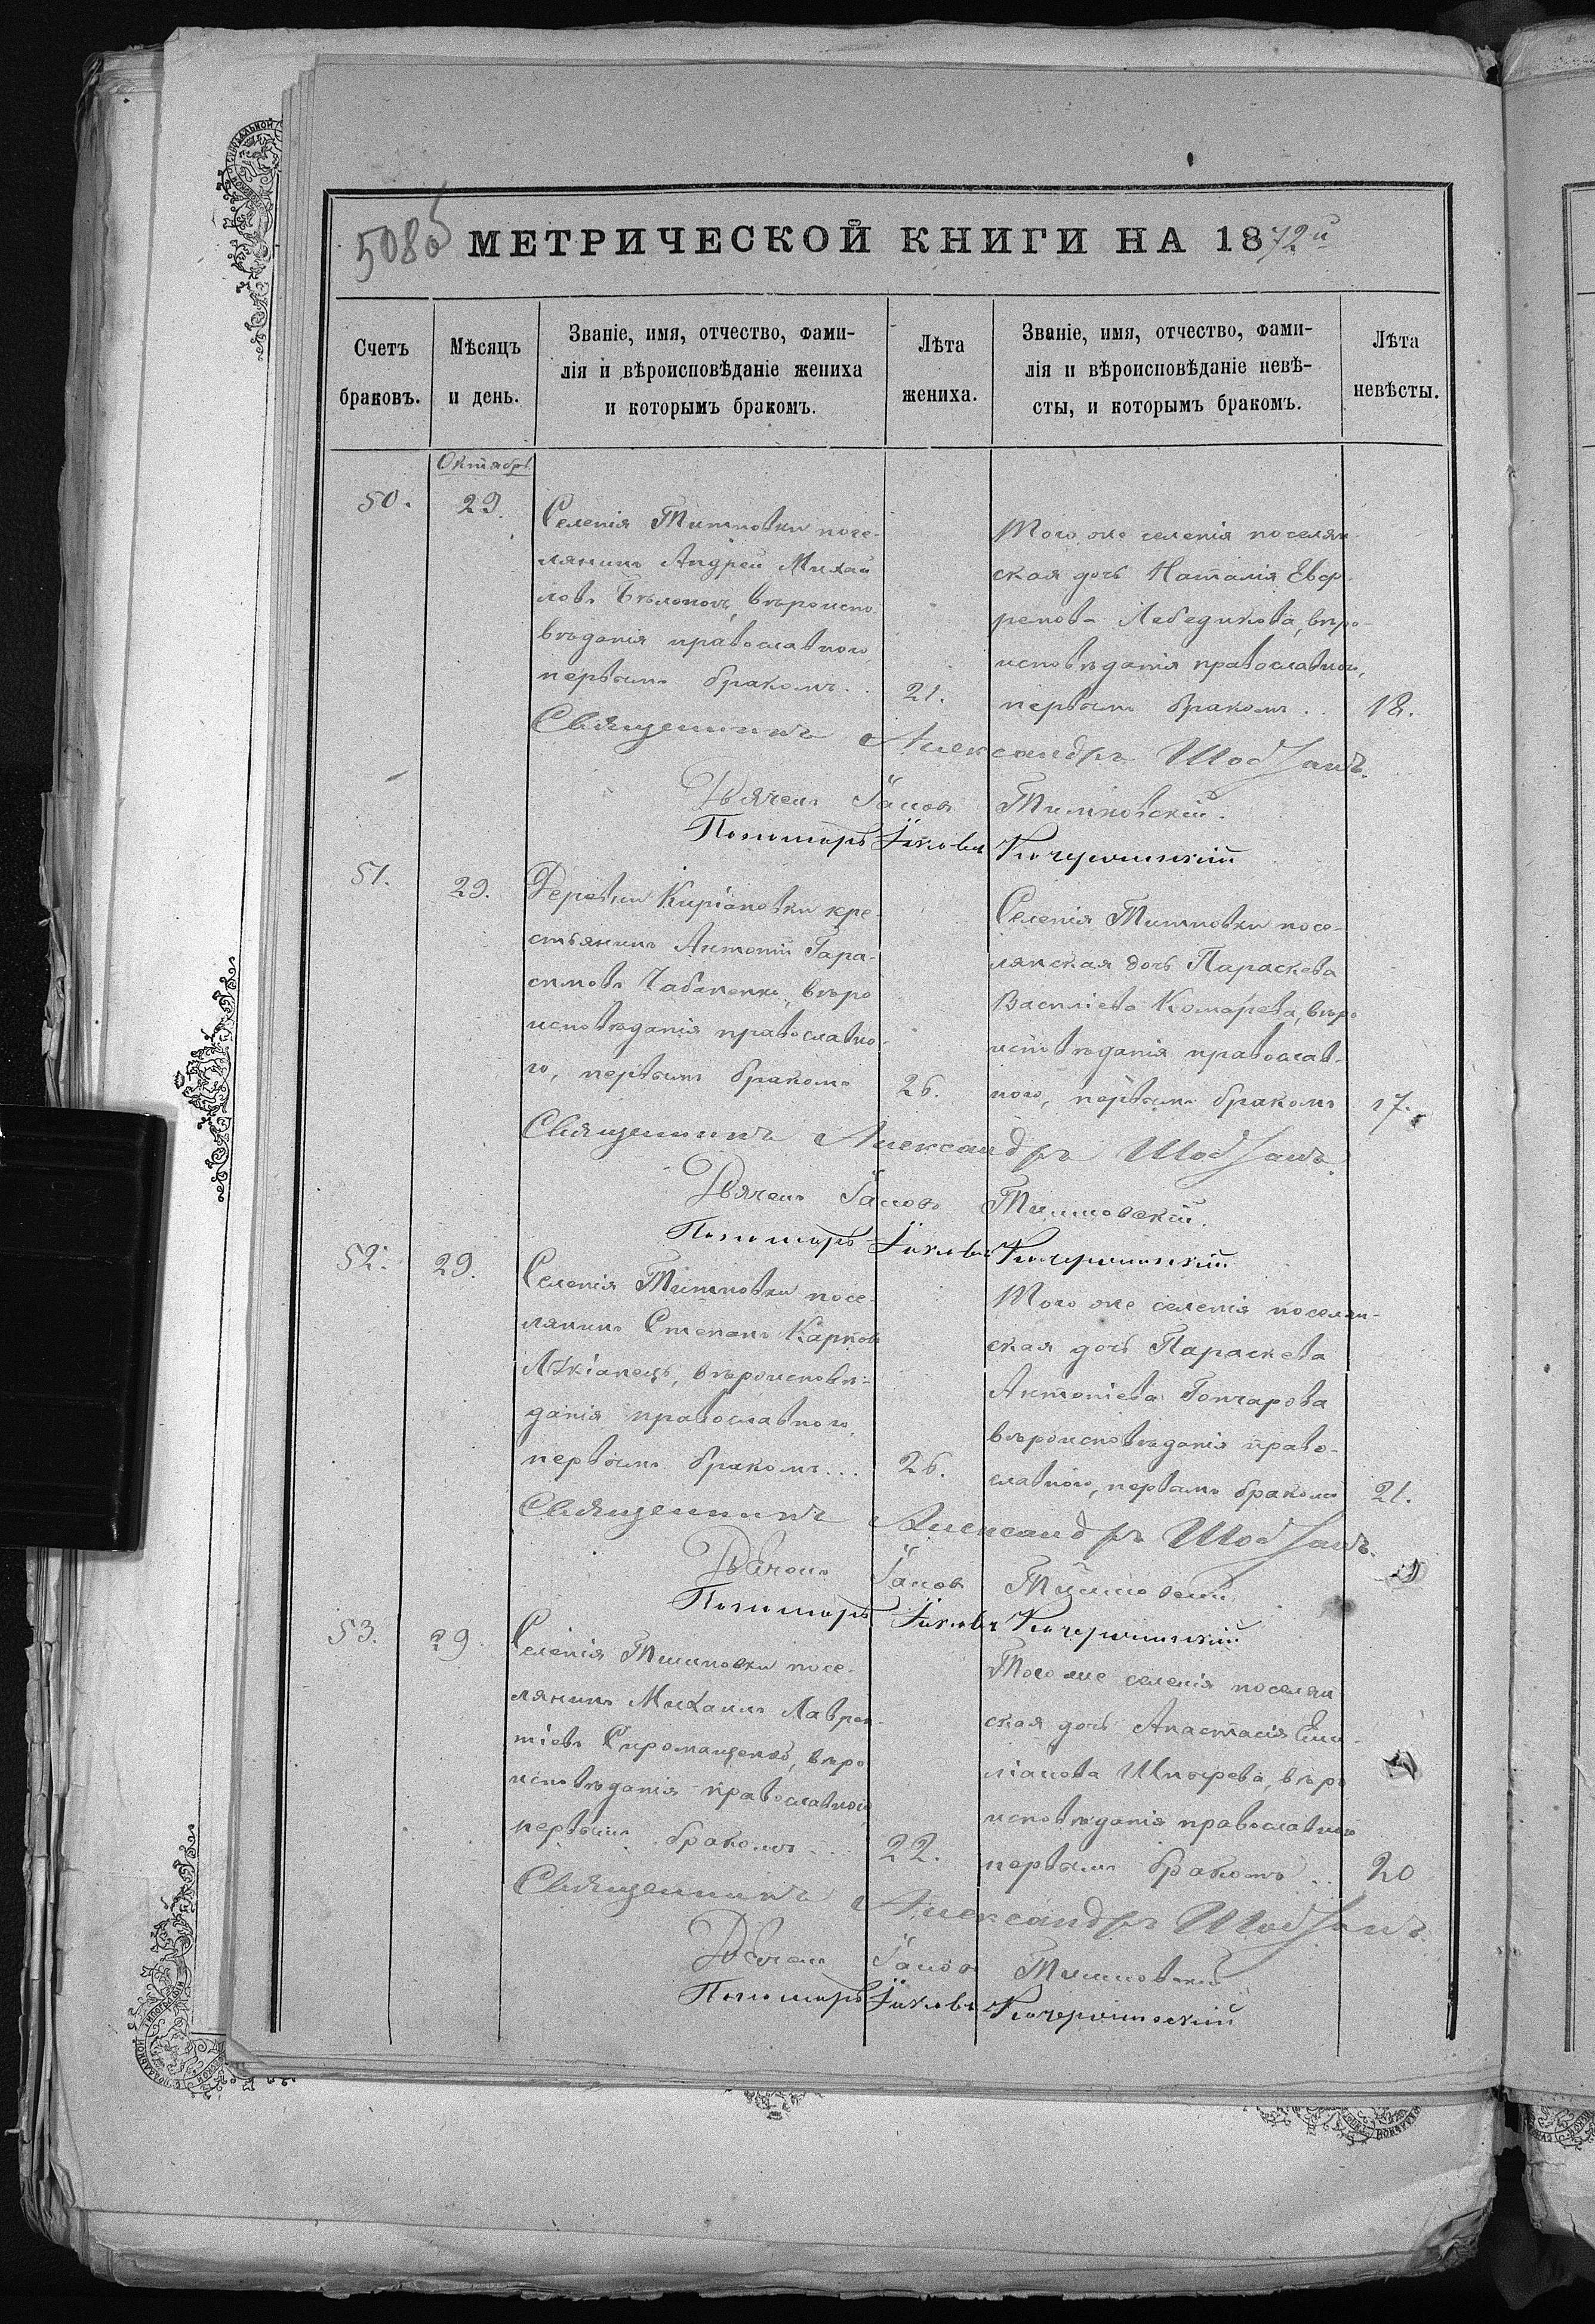 508об МЕТРИЧЕСКОЙ КНИГИ НА 1872й
Счетъ браковъ.
Мѣсяцъ и день.
Званіе, имя, отчество, фами-
лія и вѣроисповѣданіе жениха
и которымъ бракомъ.
Лѣта жениха.
Званіе, имя, отчество, фами-
лія и вѣроисповѣданіе невѣ-
сты, и которымъ бракомъ.
Лѣта невѣсты.
Октябрь
50.
29.
Селенія Тишковки посе-
лянинъ Андрей Михай
ловъ вѣроиспо
вѣданія православного,
первымъ бракомъ..
21.
Того же селенія поселян
ская дочь Наталія Евф
ремова Лебедикова, вѣро-
исповѣданія православного,
первымъ бракомъ..
18.
Священникъ Александръ
Дьячекъ Іаковъ Тишковскій.
Пономарь Іаковъ
51.
29.
Деревни Киріаковки кре
стьянинъ Антоній Гара-
симовъ Чабаненко, вѣро
исповѣданія православно-
го, первымъ бракомъ
26.
Селенія Тишковки посе-
лянская дочь Параскева
Василіева Комарева, вѣро
исповѣданія православ-
ного, первымъ бракомъ
17.
Священникъ Александръ
Дьячекъ Іаковъ Тишковскій.
Пономарь Іаковъ
52.
29.
Селенія Тишковки посе-
лянинъ Степанъ Карповъ
вѣроисповѣ-
данія православного,
первымъ бракомъ...
26.
Того же селенія поселян-
ская дочь Параскева
Антоніева Гончарова
вѣроисповѣданія право-
славного, первымъ бракомъ
21.
Священникъ Александръ
Дьячекъ Іаковъ Тишковскій
Пономарь Іаковъ
53.
29.
Селенія Тишковки посе-
лянинъ Михаилъ Лаврен-
тіевъ Сиромащенко, вѣро
исповѣданія православного
первымъ бракомъ...
22.
Того же селенія поселян
ская дочь Анастасія Еми-
ліанова вѣро
исповѣданія православного
первымъ бракомъ..
20
Священникъ Александръ
Дьячекъ Іаковъ Тишковскій
Пономарь Іаковъ